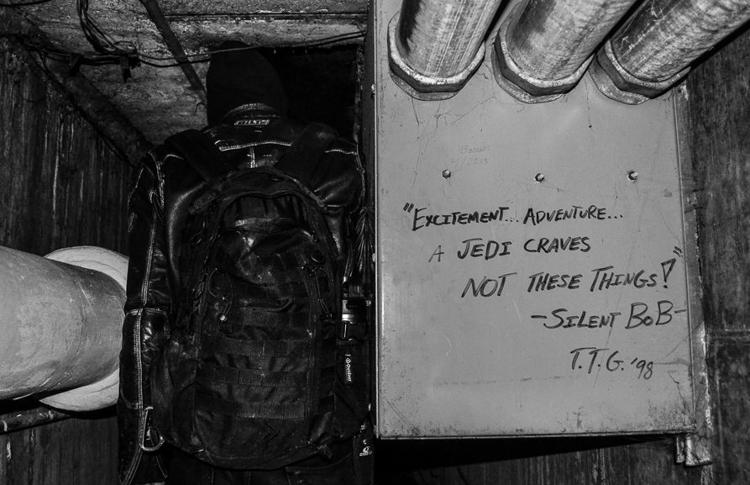 "EXCITEMENT... ADVENTURE...
A JEDI CRAVES
NOT THESE THINGS!"
-SILENT BOB-
T.T.G. '98